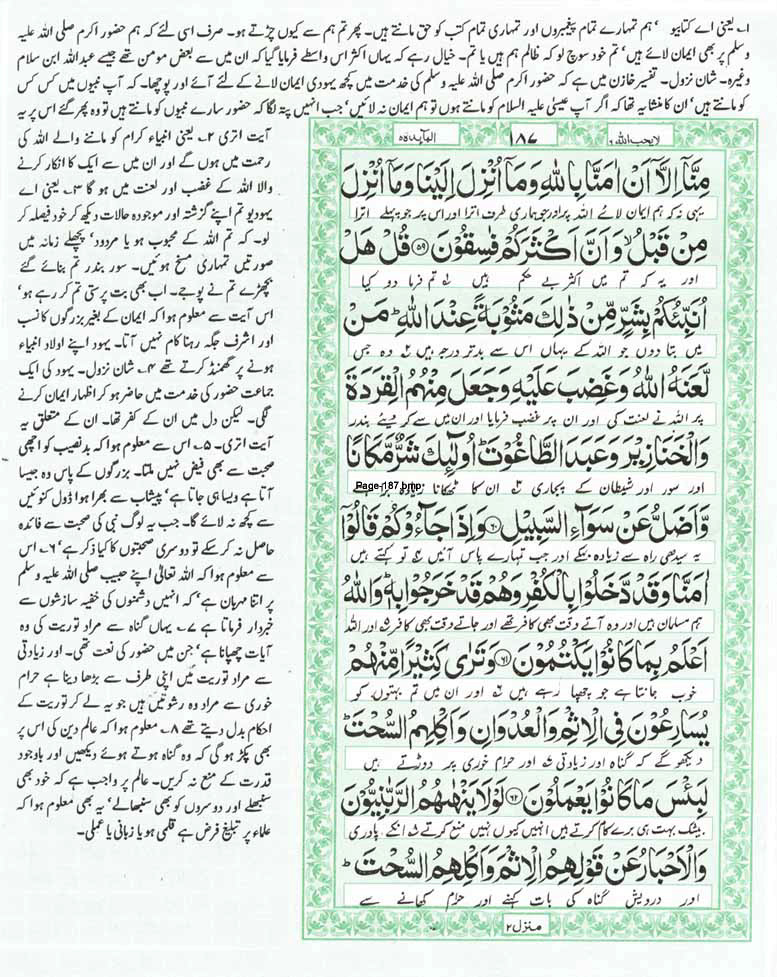 ۱؎ یعنی اے کتابیو ' ہم تمہارے تمام پیغمبروں اور تمہاری تمام کتب کو حق مانتے ہیں۔ پھر تم ہم سے کیوں چڑتے ہو۔ صرف اسی لئے کہ ہم حضور اکرم صلی اللہ علیہ
وسلم پر بھی ایمان لائے ہیں' تم خود سوچ لو کہ ظالم ہم ہیں یا تم۔ خیال رہے کہ یہاں اکثر اس واسطے فرمایا گیا کہ ان میں سے بعض مومن تھے جیسے عبداللہ ابن سلام
وغیرہ۔ شان نزول۔ تفسیر خازن میں ہے کہ حضور اکرم صلی اللہ علیہ وسلم کی خدمت میں کچھ یہودی ایمان لانے کے لئے آئے اور پوچھا۔ کہ آپ نبیوں میں کس کس
کو مانتے ہیں' ان کا منشا یہ تھا کہ اگر آپ عیسیٰ علیہ السلام کو مانتے ہوں تو ہم ایمان نہ لائیں' جب انہیں پتہ لگا کہ حضور سارے نبیوں کو مانتے ہیں تو وہ پھر گئے اس پر یہ
آیت اتری ۲؎ یعنی انبیاء کرام کو ماننے والے اللہ کی
رحمت میں ہوں گے اور ان میں سے ایک کا انکار کرنے
والا اللہ کے غضب اور لعنت میں ہو گا ۳؎ یعنی اے
یہودیو تم اپنے گزشتہ اور موجودہ حالات دیکھ کر خود فیصلہ کر
لو۔ کہ تم اللہ کے محبوب ہو یا مردود' پچھلے زمانہ میں
صورتیں تمہاری مسخ ہوئیں۔ سور بندر تم بنائے گئے
بچھڑے تم نے پوجے۔ اب بھی بت پرستی تم کر رہے ہو'
اس آیت سے معلوم ہوا کہ ایمان کے بغیر بزرگوں کا نسب
اور اشرف جگہ رہنا کام نہیں آتا۔ یہود اپنے اولاد انبیاء
ہونے پر گھمنڈ کرتے تھے ۴؎ شان نزول۔ یہود کی ایک
جماعت حضور کی خدمت میں حاضر ہو کر اظہار ایمان کرنے
لگی۔ لیکن دل میں ان کے کفر تھا۔ ان کے متعلق یہ
آیت اتری۔ ۵؎ اس سے معلوم ہوا کہ بدنصیب کو اچھی
صحبت سے بھی فیض نہیں ملتا۔ بزرگوں کے پاس وہ جیسا
آتا ہے ویسا ہی جاتا ہے' پیشاب سے بھرا ہوا ڈول کنوئیں
سے کچھ نہ لائے گا۔ جب یہ لوگ نبی کی صحبت سے فائدہ
حاصل نہ کر سکے تو دوسری صحبتوں کا کیا ذکر ہے' ۶؎ اس
سے معلوم ہوا کہ اللہ تعالیٰ اپنے حبیب صلی اللہ علیہ وسلم
پر اتنا مہربان ہے' کہ انہیں دشمنوں کی خفیہ سازشوں سے
خبردار فرماتا ہے ۷؎ یہاں گناہ سے مراد توریت کی وہ
آیات چھپانا ہے' جن میں حضور کی نعت تھی۔ اور زیادتی
سے مراد توریت میں اپنی طرف سے بڑھا دینا ہے حرام
خوری سے مراد وہ رشوتیں ہیں جو یہ لے کر توریت کے
احکام بدل دیتے تھے ۸؎ معلوم ہوا کہ عالم دین کی اس پر
بھی پکڑ ہو گی کہ وہ گناہ ہوتے ہوئے دیکھیں اور باوجود
قدرت کے منع نہ کریں۔ عالم پر واجب ہے کہ خود بھی
سنبھلے اور دوسروں کو بھی سنبھالے' یہ بھی معلوم ہوا کہ
علماء پر تبلیغ فرض ہے قلمی ہو یا زبانی یا عملی۔
لایحب اللہ ۶ ۱۸۷ المآئدۃ ۵
مِنَّاۤ اِلَّاۤ اَنْ اٰمَنَّا بِاللّٰهِ وَمَاۤ اُنْزِلَ اِلَیْنَا وَمَاۤ اُنْزِلَ
یہی نہ کہ ہم ایمان لائے اللہ پر اور جو ہماری طرف اترا اور اس پر جو پہلے اترا
مِنْ قَبْلُ ۙ وَاَنَّ اَكْثَرَكُمْ فٰسِقُوْنَ ﴿۵۹﴾ قُلْ هَلْ
اور یہ کہ تم میں اکثر بے حکم ہیں تم فرما دو کیا
اُنَبِّئُكُمْ بِشَرٍّ مِّنْ ذٰلِكَ مَثُوْبَةً عِنْدَ اللّٰهِ ؕ مَنْ
میں بتا دوں جو اللہ کے یہاں اس سے بدتر درجہ میں ہیں وہ جس
لَّعَنَهُ اللّٰهُ وَغَضِبَ عَلَیْهِ وَجَعَلَ مِنْهُمُ الْقِرَدَةَ
پر اللہ نے لعنت کی اور ان پر غضب فرمایا اور ان میں سے کر دیئے بندر
وَالْخَنَازِیْرَ وَعَبَدَ الطَّاغُوْتَ ؕ اُولٰٓئِكَ شَرٌّ مَّكَانًا
اور سور اور شیطان کے پجاری ان کا ٹھکانا زیادہ برا ہے
Page-187.bmp
وَّاَضَلُّ عَنْ سَوَآءِ السَّبِیْلِ ﴿۶۰﴾ وَاِذَا جَآءُوْكُمْ قَالُوْۤا
یہ سیدھی راہ سے زیادہ بہکے اور جب تمہارے پاس آئیں تو کہتے ہیں
اٰمَنَّا وَقَدْ دَّخَلُوْا بِالْكُفْرِ وَهُمْ قَدْ خَرَجُوْا بِهٖ ؕ وَاللّٰهُ
ہم مسلمان ہیں اور وہ آتے وقت بھی کافر تھے اور جاتے وقت بھی کافر اور اللہ
اَعْلَمُ بِمَا كَانُوْا یَكْتُمُوْنَ ﴿۶۱﴾ وَتَرٰی كَثِیْرًا مِّنْهُمْ
خوب جانتا ہے جو چھپا رہے ہیں اور ان میں تم بہتوں کو
یُسَارِعُوْنَ فِی الْاِثْمِ وَالْعُدْوَانِ وَاَكْلِهِمُ السُّحْتَ ؕ
دیکھو گے کہ گناہ اور زیادتی اور حرام خوری پر دوڑتے ہیں
لَبِئْسَ مَا كَانُوْا یَعْمَلُوْنَ ﴿۶۲﴾ لَوْلَا یَنْهٰىهُمُ الرَّبّٰنِیُّوْنَ
بیشک بہت ہی برے کام کرتے ہیں انہیں کیوں نہیں منع کرتے انکے پادری
وَالْاَحْبَارُ عَنْ قَوْلِهِمُ الْاِثْمَ وَاَكْلِهِمُ السُّحْتَ ؕ
اور درویش گناہ کی بات کہنے اور حرام کھانے سے
منزل ۲